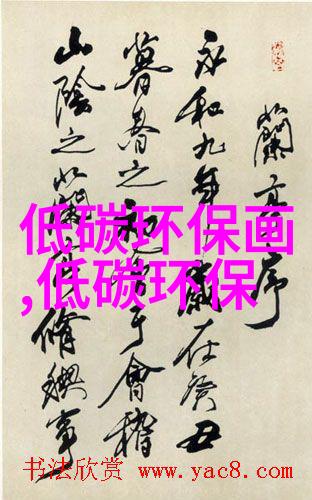 蘭亭序
永和九年歲在癸丑
暮春之初會于會稽
山陰之蘭亭脩禊事
低碳环保画
,低碳环保
书法欣赏 www.yac8.com